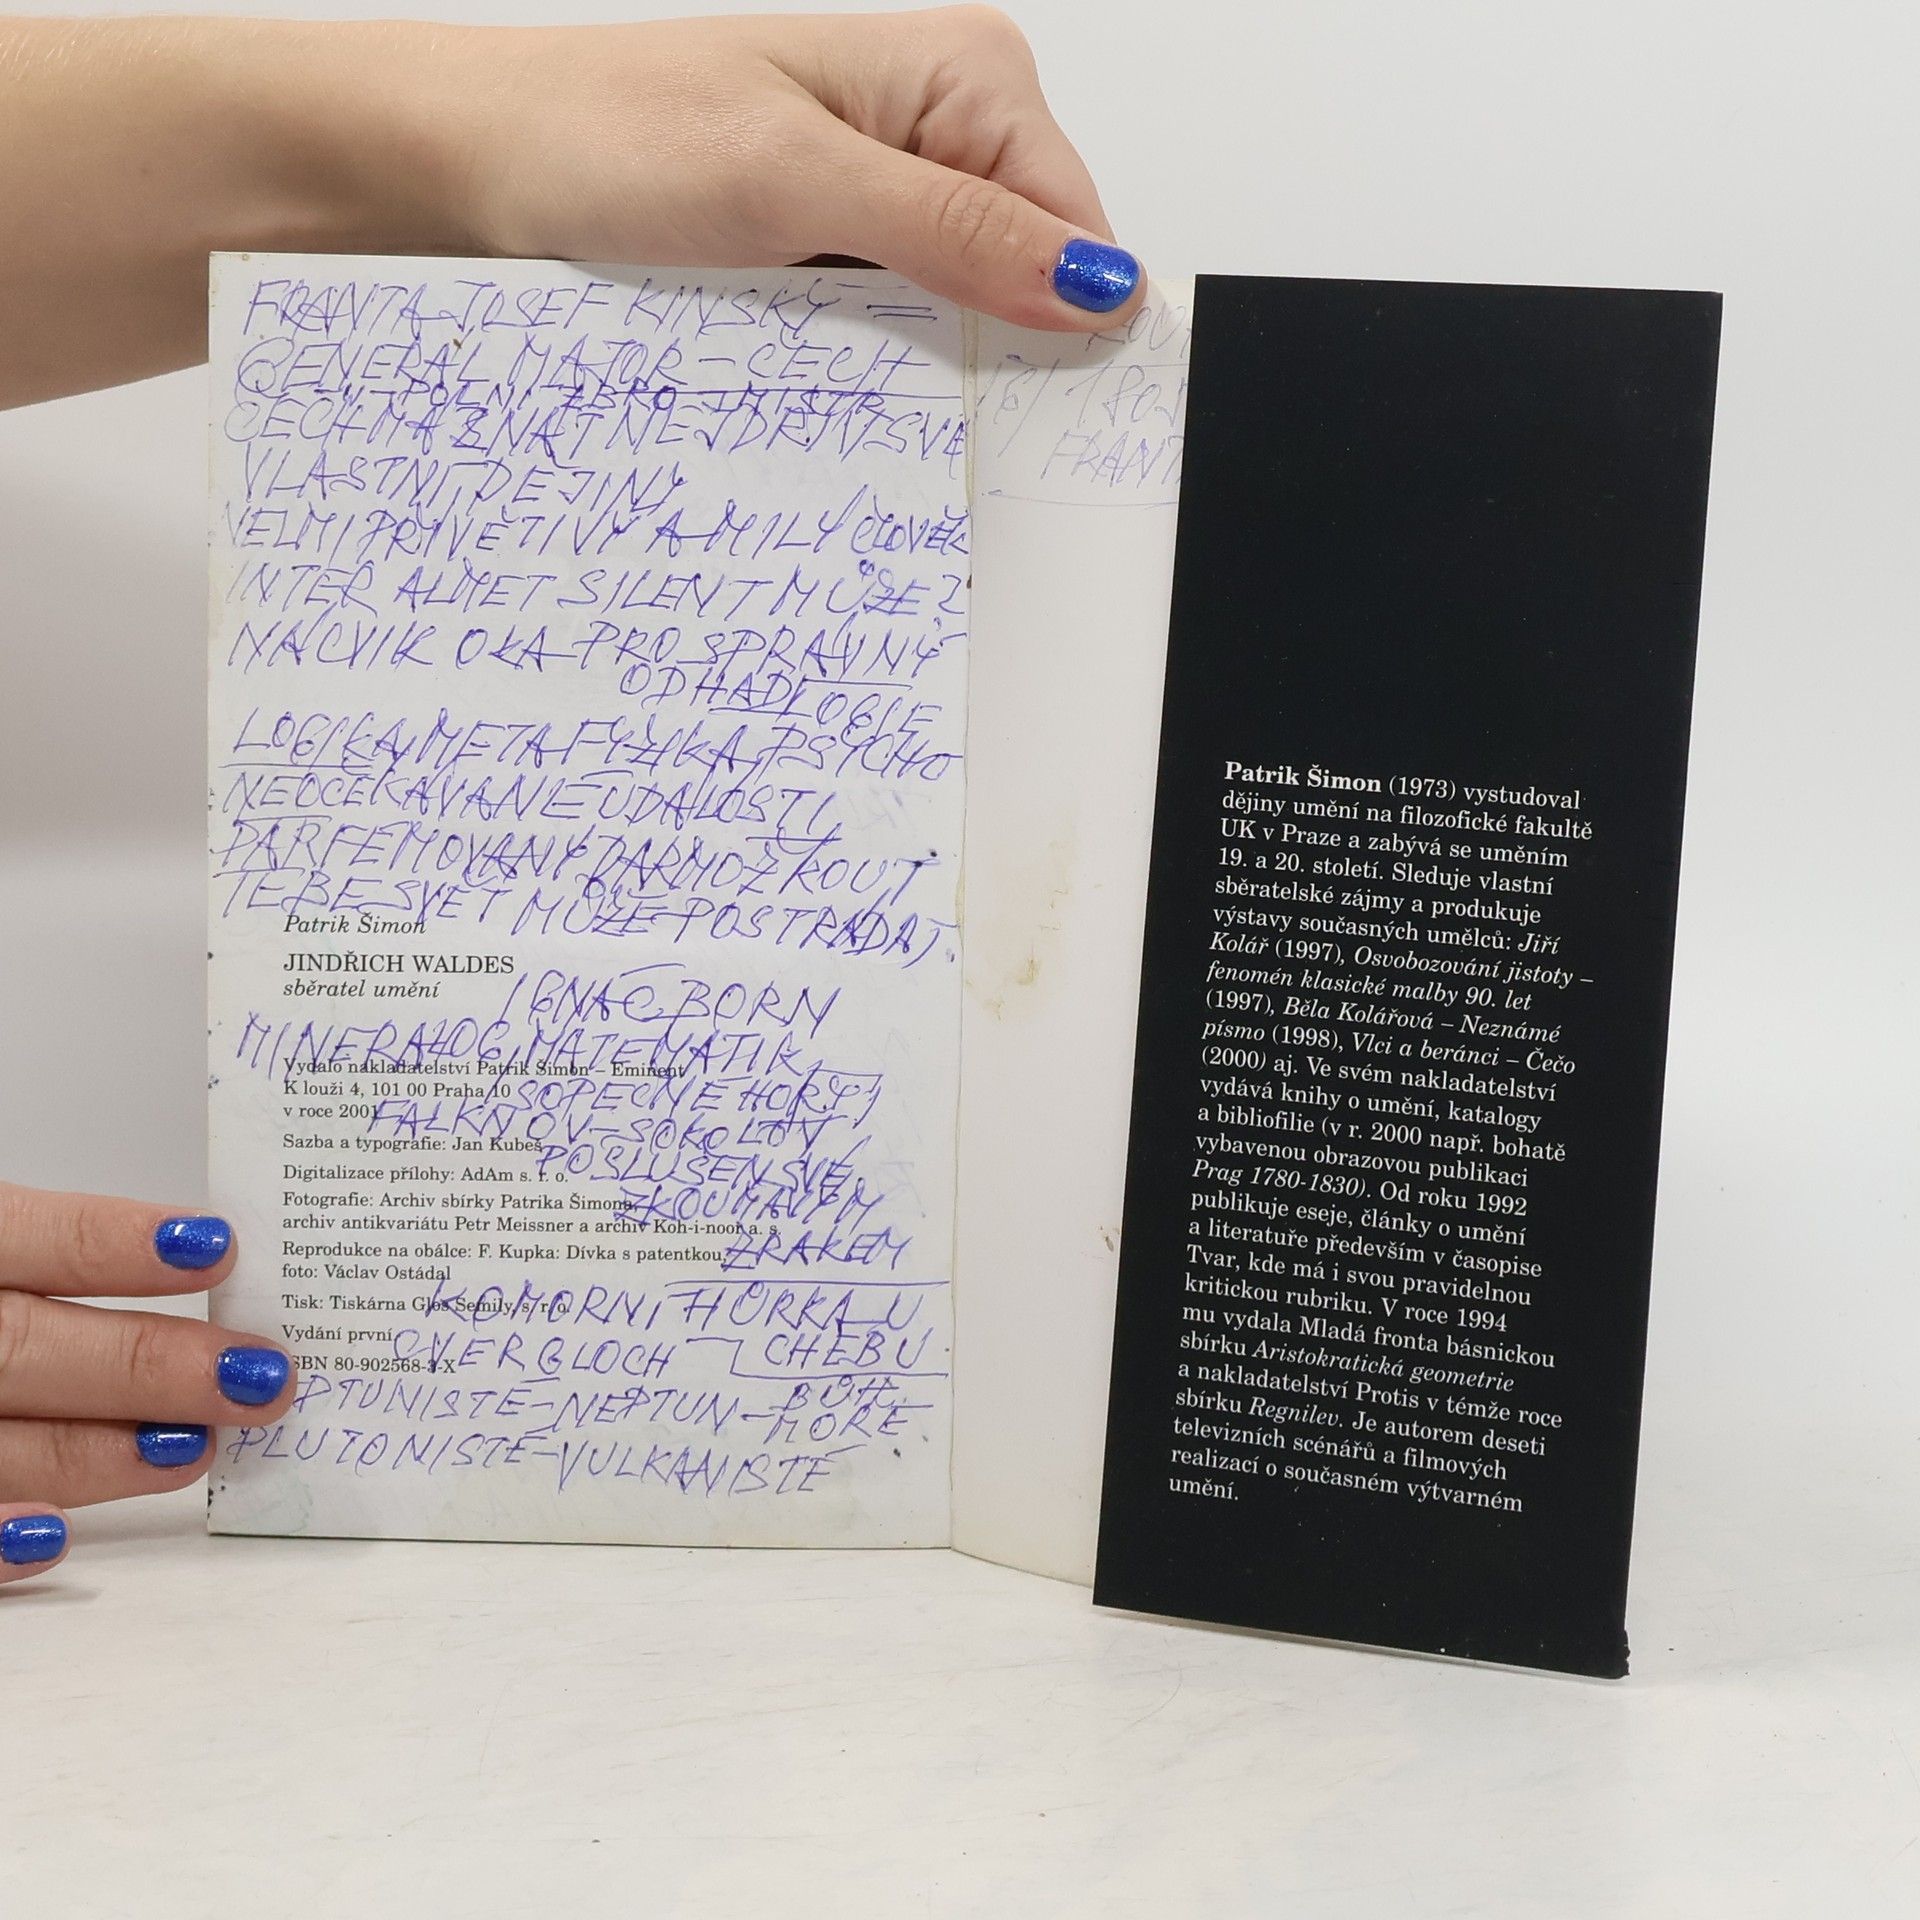 FRANTA JOSEF KINSKÝ =
GENERÁL MAJOR – ČECH
POLNÍ ZBROJMISTR
ČECH MÁ ZNÁT NEJDŘÍV SVÉ
VLASTNÍ DĚJINY
VELMI PŘÍVĚTIVÝ A MILÝ ČLOVĚK
INTER SILENT MŮŽE?
NÁCVIK OKA PRO SPRÁVNÝ
ODHAD
LOGIE
LOGIKA, METAFYZIKA, PSYCHO
NEOČEKÁVANÉ UDÁLOSTI,
PARFÉMOVANÝ DARMOŽROUT
TEBE SVĚT MŮŽE POSTRÁDAT.
Patrik Šimon
JINDŘICH WALDES
sběratel umění
IGNÁC BORN
MINERALOG, MATEMATIK,
Vydalo nakladatelství Patrik Šimon – Eminent
K louži 4, 101 00 Praha 10
SOPEČNÉ HORY
v roce 2001
FALKNOV – SOKOLOV
Sazba a typografie: Jan Kubeš
POSLUŠEN SVÉ
Digitalizace přílohy: AdAm s. r. o.
ZKOUMAVÝM
Fotografie: Archiv sbírky Patrika Šimona,
archiv antikvariátu Petr Meissner a archiv Koh-i-noor a. s.
ZRAKEM
Reprodukce na obálce: F. Kupka: Dívka s patentkou,
foto: Václav Ostádal
KOMORNÍ HŮRKA U
Tisk: Tiskárna Glos Semily, s. r. o.
CHEBU
Vydání první
ISBN 80-902568-3-X
BŮH
NEPTUNISTÉ – NEPTUN – MOŘE
PLUTONISTÉ – VULKANISTÉ
Patrik Šimon (1973) vystudoval
dějiny umění na filozofické fakultě
UK v Praze a zabývá se uměním
19. a 20. století. Sleduje vlastní
sběratelské zájmy a produkuje
výstavy současných umělců: Jiří
Kolář (1997), Osvobozování jistoty –
fenomén klasické malby 90. let
(1997), Běla Kolářová – Neznámé
písmo (1998), Vlci a beránci – Čečo
(2000) aj. Ve svém nakladatelství
vydává knihy o umění, katalogy
a bibliofilie (v r. 2000 např. bohatě
vybavenou obrazovou publikaci
Prag 1780-1830). Od roku 1992
publikuje eseje, články o umění
a literatuře především v časopise
Tvar, kde má i svou pravidelnou
kritickou rubriku. V roce 1994
mu vydala Mladá fronta básnickou
sbírku Aristokratická geometrie
a nakladatelství Protis v témže roce
sbírku Regnilev. Je autorem deseti
televizních scénářů a filmových
realizací o současném výtvarném
umění.